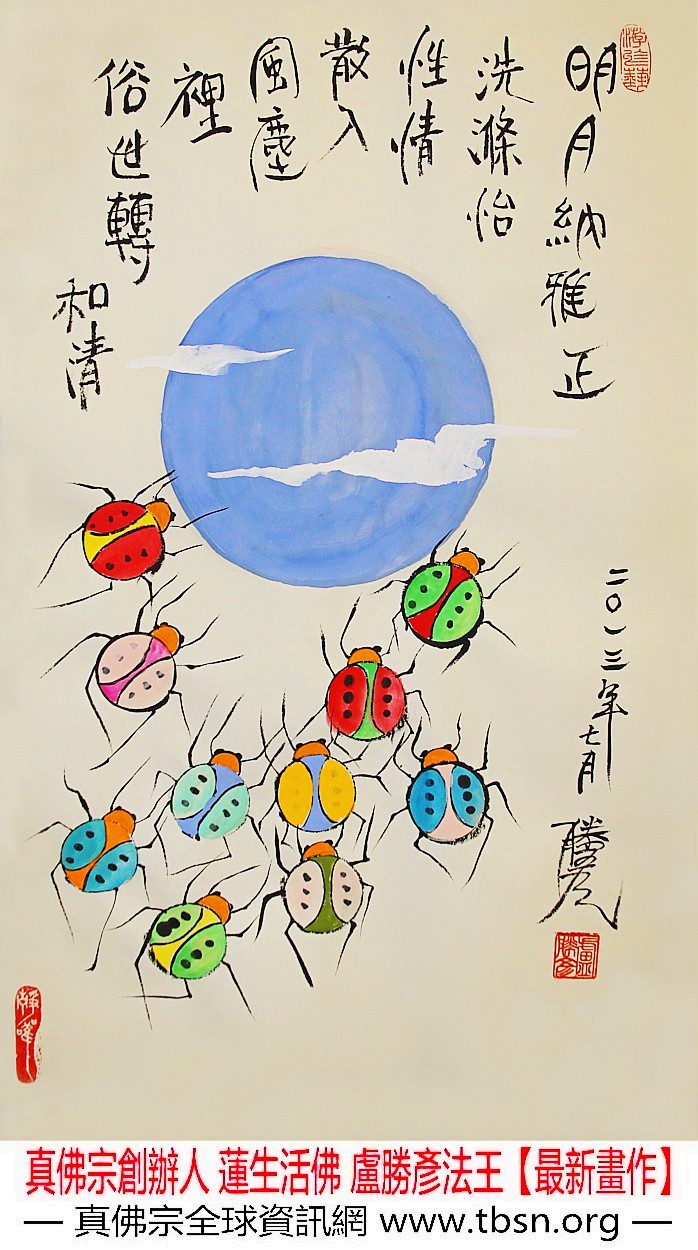 明月納雅正
洗滌怡
性情
散入
風塵
裡
俗世轉
和清
二〇一三年七月
勝彥
盧勝彥
真佛宗創辦人 蓮生活佛 盧勝彥法王【最新畫作】
— 真佛宗全球資訊網 www.tbsn.org —